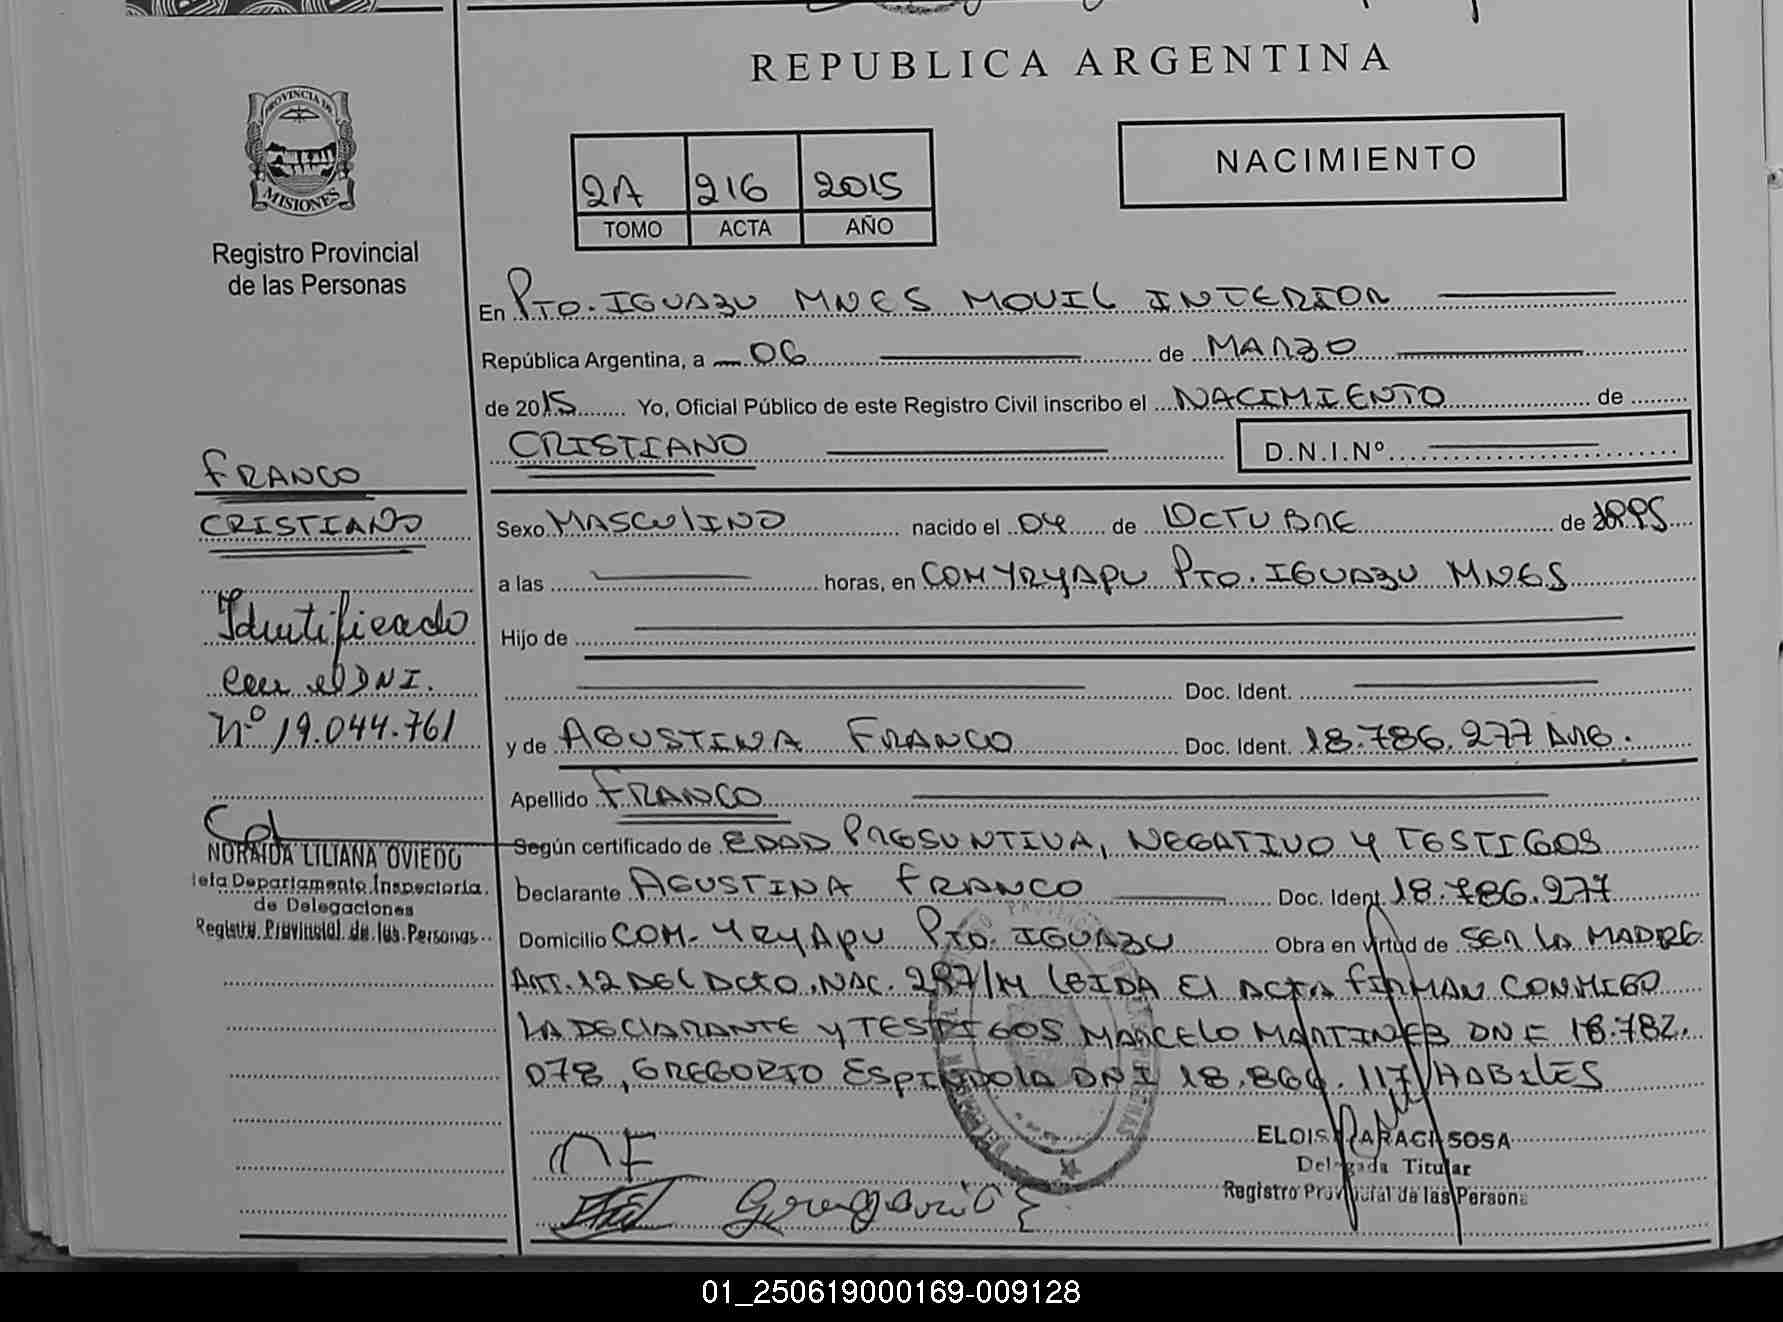 REPUBLICA ARGENTINA
PROVINCIA DE
MISIONES
Registro Provincial
de las Personas
2A 216 2015
TOMO ACTA AÑO
NACIMIENTO
En PTO. IGUAZU MNES MOVIL INTERIOR
República Argentina, a 06 de MARZO
de 2015 Yo, Oficial Público de este Registro Civil inscribo el NACIMIENTO de
CRISTIANO D.N.I.Nº
Sexo MASCULINO nacido el 04 de OCTUBRE de 1995
a las horas, en COM YRYAPU PTO. IGUAZU MNES
Hijo de
Doc. Ident.
y de AGUSTINA FRANCO Doc. Ident. 18.786.277 ARG.
Apellido FRANCO
Según certificado de EDAD PRESUNTIVA, NEGATIVO Y TESTIGOS
Declarante AGUSTINA FRANCO Doc. Ident. 18.786.277
Domicilio COM- YRYAPU PTO. IGUAZU Obra en virtud de SER LA MADRE
ART. 12 DEL DCTO. NAC. 287/14 LEIDA El ACTA FIRMAN CONMIGO
LA DECLARANTE Y TESTIGOS MARCELO MARTINEZ DNI 18.782.
078, GREGORIO ESPINDOLA DNI 18.864.117 HABILES
FRANCO
CRISTIANO
Identificado
con el DNI.
Nº 19.044.761
NORAIDA LILIANA OVIEDO
Jefa Departamento Inspectoria
de Delegaciones
Registro Provincial de las Personas
ELOISA SOSA
Delegada Titular
Registro Provincial de las Persona
Gregorio E
01_250619000169-009128